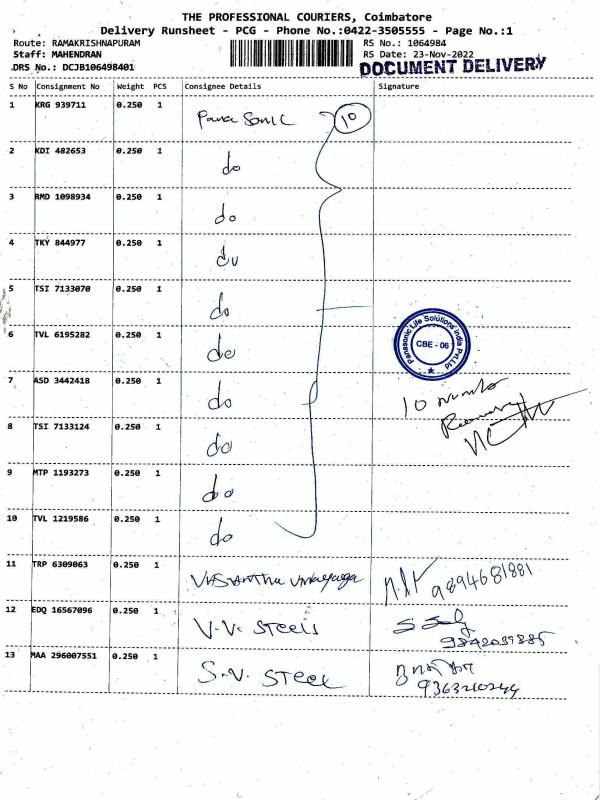 THE PROFESSIONAL COURIERS, Coimbatore
Delivery Runsheet - PCG - Phone No.:0422-3505555 - Page No.:1
Route: RAMAKRISHNAPURAM RS No.: 1064984
Staff: MAHENDRAN RS Date: 23-Nov-2022
DRS No.: DCJB106498401 DOCUMENT DELIVERY
S No Consignment No Weight PCS Consignee Details Signature
1 KRG 939711 0.250 1 Panasonic 10
2 KDI 482653 0.250 1 do
3 RMD 1098934 0.250 1 do
4 TKY 844977 0.250 1 do
5 TSI 7133070 0.250 1 do
6 TVL 6195282 0.250 1 do
Panasonic Life Solutions India Pvt.Ltd
CBE - 06
7 ASD 3442418 0.250 1 do
10 number
8 TSI 7133124 0.250 1 do
9 MTP 1193273 0.250 1 do
10 TVL 1219586 0.250 1 do
11 TRP 6309063 0.250 1 9894681881
12 EDQ 16567096 0.250 1 V.V. STEELS
9842039885
13 MAA 296007551 0.250 1 S.V. STEEL
9363210244